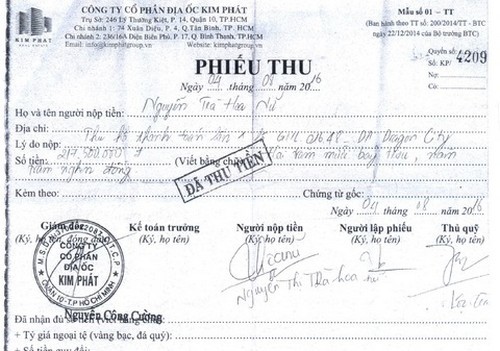 CÔNG TY CỔ PHẦN ĐỊA ỐC KIM PHÁT
Trụ Sở: 246 Lý Thường Kiệt, P 14, Quận 10, TP.HCM
Chi nhánh 1: 74 Xuân Diệu, P. 4, Q.Tân Bình, TP HCM
Chi nhánh 2: 236/16A Điện Biên Phủ, P. 17, Q. Bình Thạnh, TP.HCM
Email: info@kimphatgroup.vn Website: www.kimphatgroup.vn
KIM PHÁT
REAL ESTATE
Mẫu số 01 - TT
(Ban hành theo TT số: 200/2014/TT-BTC
ngày 22/12/2014 của Bộ BTC)
Quyển số:
Số: KP/ 4209
Nợ:
Có:
PHIẾU THU
Ngày 04 tháng 08 năm 2016
Họ và tên người nộp tiền: Nguyễn Trà Hoa Nữ
Địa chỉ:
Lý do nộp: Thu hồ thanh toán lần 1 DA Dragon City
Số tiền: 217.500.000 đ (Viết bằng chữ): Hai trăm mười bảy triệu, năm
trăm nghìn đồng
ĐÃ THU TIỀN
Kèm theo: Chứng từ gốc:
Ngày 04 tháng 08 năm 2016
Giám đốc Kế toán trưởng Người nộp tiền Người lập phiếu Thủ quỹ
(Ký, họ tên, đóng dấu) (Ký, họ tên) (Ký, họ tên) (Ký, họ tên) (Ký, họ tên)
CÔNG TY
CỔ PHẦN
ĐỊA ỐC
KIM PHÁT
QUẬN 10-T.P HỒ CHÍ MINH
Nguyễn Thị Trà Hoa Nữ
Nguyễn Công Cường
Đã nhận đủ số tiền (viết bằng chữ):
+ Tỷ giá ngoại tệ (vàng bạc, đá quý):
+ Số tiền quy đổi: